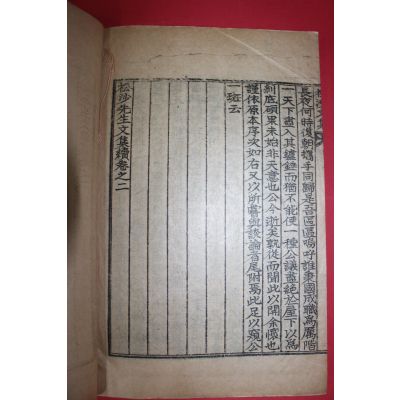 長夜何時復朝携手同歸是吾區區嗚呼誰秉國成職爲厲階
一天下盡入其爐錘而猶不能使一種公議盡絶於屋下以爲
剝底碩果未始非天意也公今逝矣孰從而聞此以開余懷也
謹依原本序次如右又以所嘗與談論者尾附焉此足以窺公
一斑云
松沙先生文集續卷之二